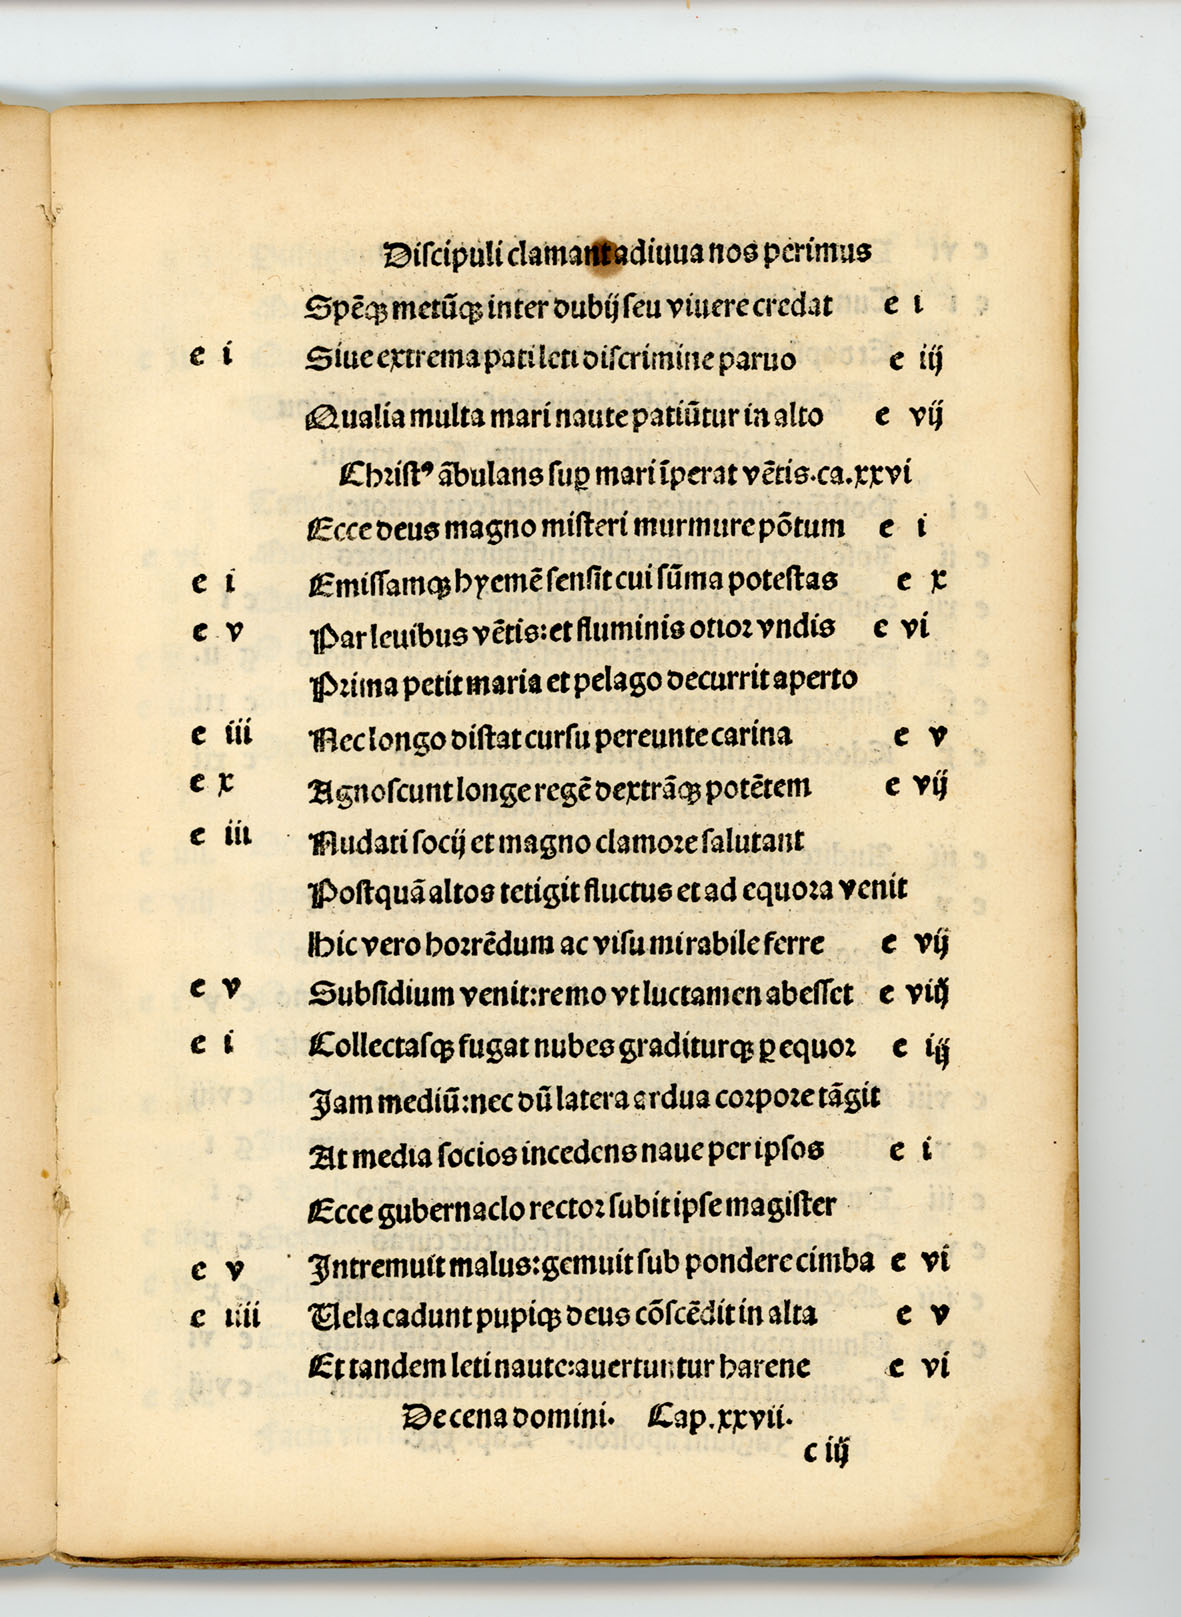 Diſcipuli clamant adiuua nos perimus
Spēqꝫ metūqꝫ inter dubij ſeu viuere credat e i
e i Siue extrema pati leti diſcrimine paruo e iij
Qualia multa mari naute patiūtur in alto e vij
Chriſtꝰ ābulans ſuꝑ mari īperat vētis.ca.xxvi
Ecce deus magno miſteri murmure pōtum e i
e i Emiſſamqꝫ hyemē ſenſit cui ſūma poteſtas e x
e v Par leuibus vētis:et fluminis otioꝛ vndis e vi
Pꝛima petit maria et pelago decurrit aperto
e iii Nec longo diſtat curſu pereunte carina e v
e x Agnoſcunt longe regē dextrāqꝫ potētem e vij
e iii Nudati ſocij et magno clamoꝛe ſalutant
Poſtquā altos tetigit fluctus et ad equoꝛa venit
Hic vero hoꝛrēdum ac viſu mirabile ferre e vij
e v Subſidium venit:remo vt luctamen abeſſet e viij
e i Collectaſqꝫ fugat nubes graditurqꝫ ꝑ equoꝛ e iij
Jam mediū:nec dū latera ardua coꝛpoꝛe tāgit
At media ſocios incedens naue per ipſos e i
Ecce gubernaclo rectoꝛ ſubit ipſe magiſter
e v Intremuit malus:gemuit ſub pondere cimba e vi
e iiii Uela cadunt pupiqꝫ deus cōſcēdit in alta e v
Et tandem leti naute:auertuntur harene e vi
De cena domini. Cap.xxvii.
c iij